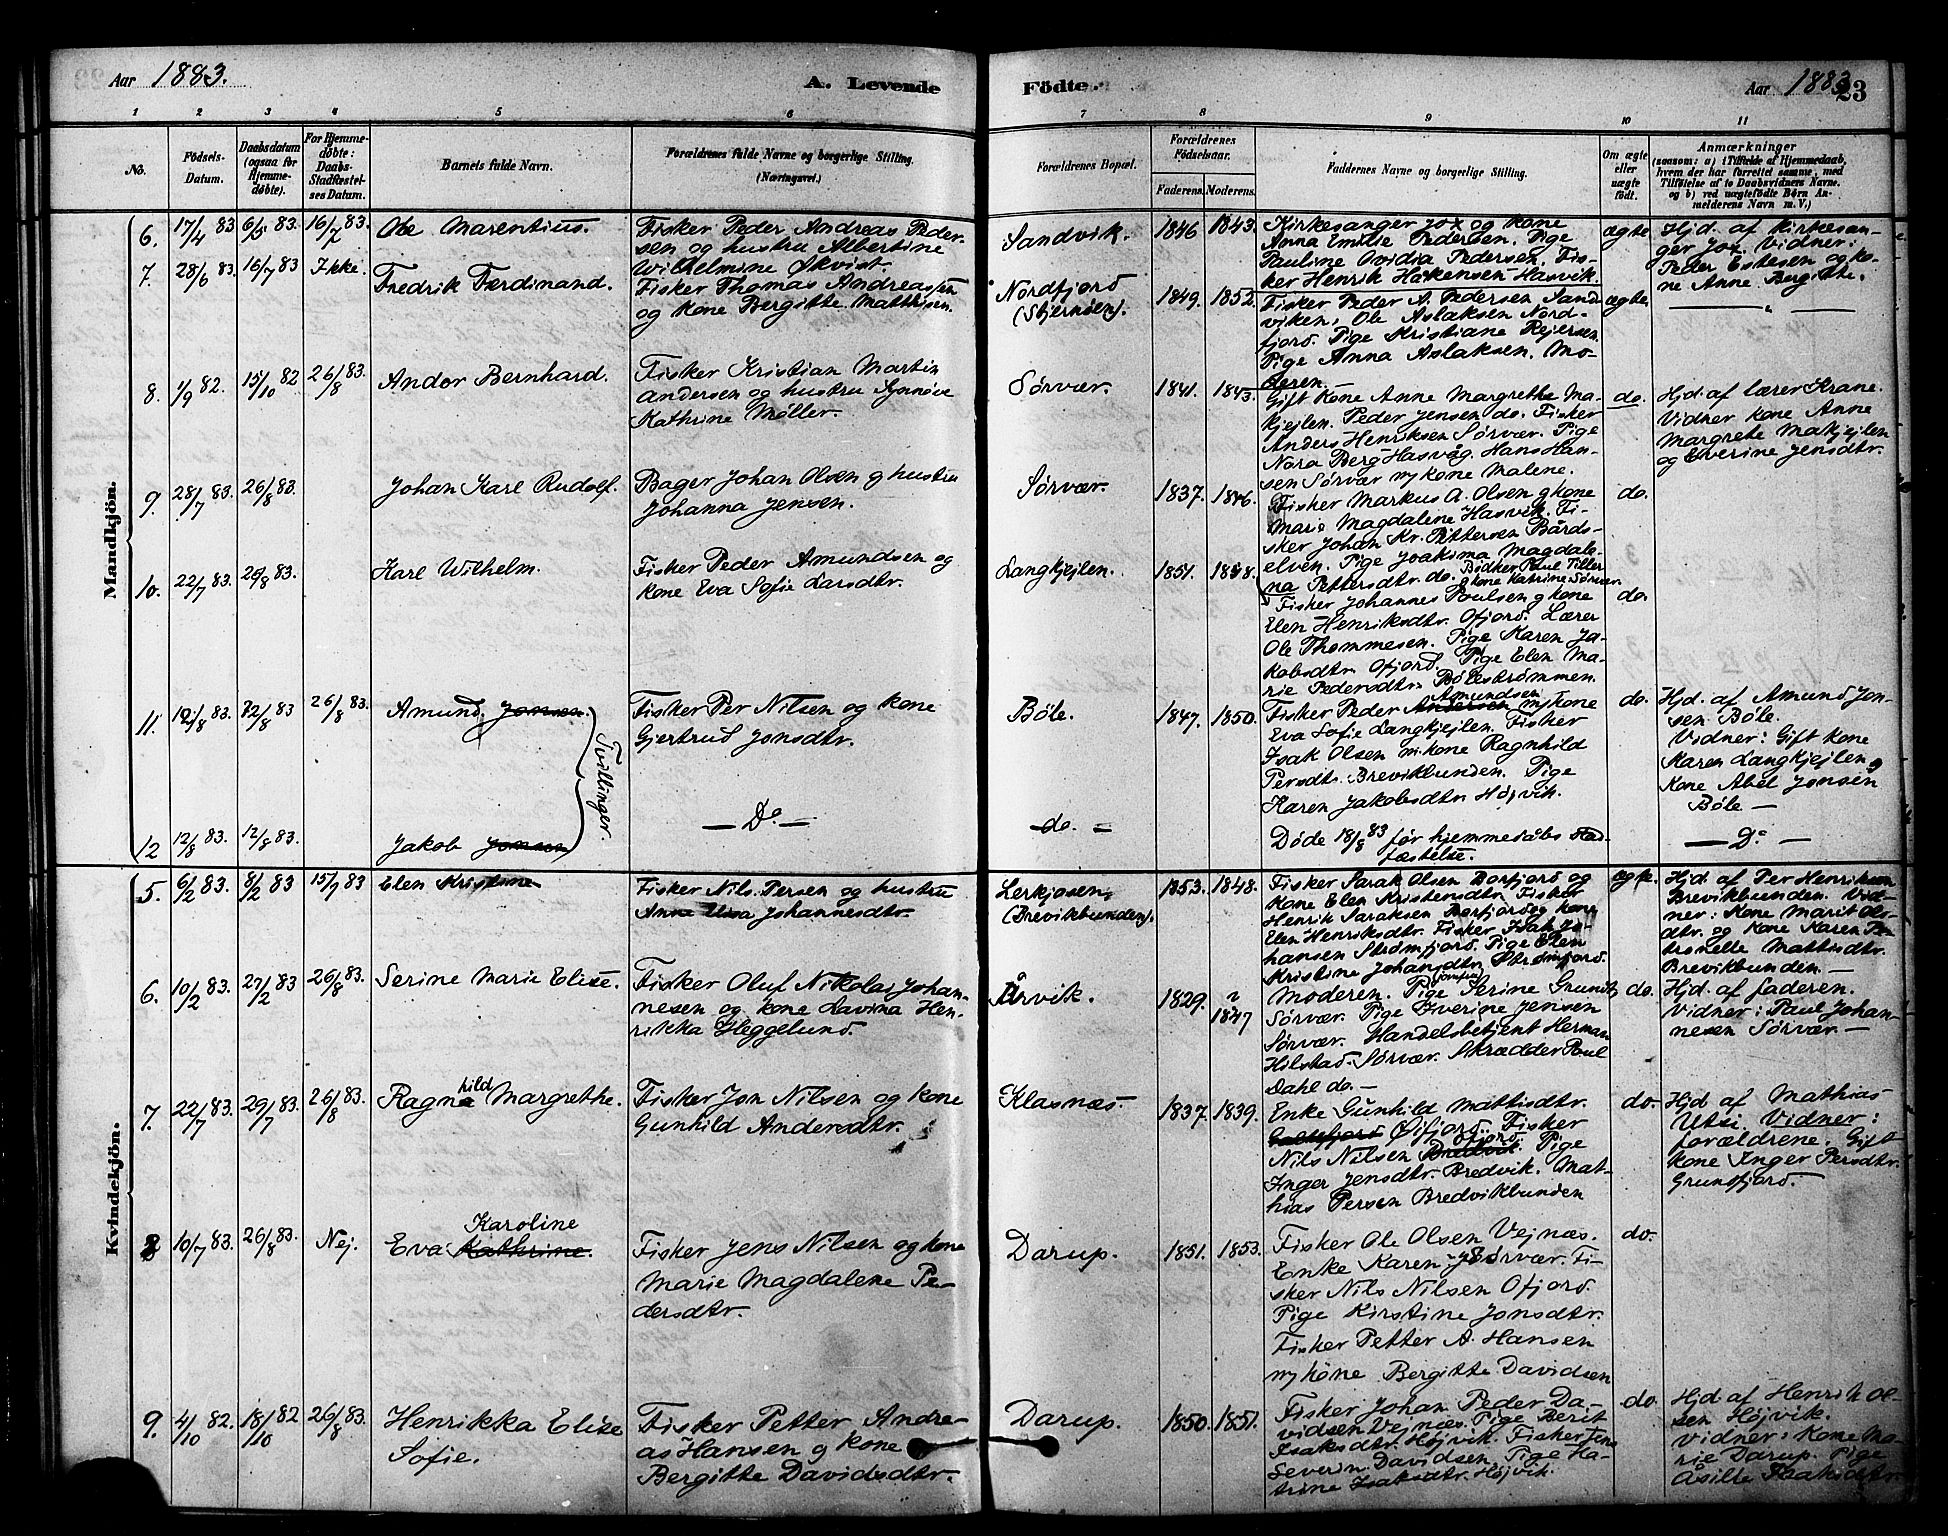 Aar 1883.
A. Levende
Födte.
Aar 1883
23
1 2 3 4 5 6 7 8 9 10 11
No.
Födsels-
Datum.
Daabsdatum
(ogsaa for
Hjemme-
döbte).
For Hjemme-
döbte:
Daabs-
Stadfæstel-
ses Datum.
Barnets fulde Navn.
Forældrenes fulde Navne og borgerlige Stilling.
(Næringsvei.)
Forældrenes Bopæl.
Forældrenes
Födselsaar.
Faderens. Moderens.
Faddernes Navne og borgerlige Stilling.
Om ægte
eller
uægte
födt.
Anmærkninger
(saasom: a) i Tilfælde af Hjemmedaab,
hvem der har forrettet samme, med
Tilföielse af to Daabsvidners Navne.
og b) ved uægtefödte Börn An-
melderens Navn m. V.)
Mandkjön.
6. 17/4 83 6/5 83. 16/7 83. Ole Marentius.
Fisker Peder Andreas Peder-
sen og hustru Albertine
Wilhelmine Økvist.
Sandvik. 1846 1843.
Kirkesanger Jox og Kone
Anna Emilie Pedersen. Pige
Pauline Ovidia Pedersen. Fis-
ker Henrik Hakensen Hasvik.
ægte
Hjd. af Kirkesan-
ger Jox Vidner:
Peder Estesen og ko-
ne Anne Bergitte.
7. 28/6 83. 16/7 83 Ikke. Fredrik Ferdinand.
Fisker Thomas Andreassen
og kone Bergitte Matthisen.
Nordfjord
(Stjernöen).
1849. 1852.
Fisker Peder A. Pedersen Sand-
viken. Ole Aslaksen Nord-
fjord. Pige Kristiane Rejersen
Pige Anna Aslaksen. Mo-
deren.
ægte
8. 1/9 82. 15/10 82 26/8 83. Andor Bernhard.
Fisker Kristian Martin
Andersen og hustru Synnöve
Kathrine Møller.
Sørvær. 1841. 1843.
Gift Kone Anne Margrethe Ma-
kjejlen. Peder Jensen do. Fisker
Anders Henriksen Sørvær. Pige
Nora Berg Hasvåg. Hans Han-
sen Sørvær m/kone Malene.
do.
Hjd. af lærer Krane.
Vidner kone Anne
Margrete Makjejlen
og Everine Jensdtr.
9. 28/7 83. 26/8 83. Johan Karl Rudolf.
Bager Johan Olsen og hustru
Johanna Jensen.
Sørvær. 1837. 1846.
Fisker Markus A. Olsen og kone
Marie Magdalene Hasvik. Fi-
sker Johan Kr. Pettersen Bårds-
elven. Pige Joakima Magdale-
na Pettersdtr. do. Bødker Paul Tiller
og kone Katrine Sørvær.
do.
10. 22/7 83. 26/8 83. Karl Wilhelm.
Fisker Peder Amundsen og
kone Eva Sofie Larsdtr.
Langkjejlen. 1851. 1848.
Fisker Johannes Poulsen og kone
Elen Henriksdtr. Ofjord. Lærer
Ole Thommesen. Pige Karen Ja-
kobsdtr. Ofjord. Pige Elen Ma-
rie Pedersdtr. Bølestrømmen.
do.
11. 12/8 83. 12/8 83 26/8 83. Amund Jonsen
Tvillinger.
Fisker Per Nilsen og kone
Gjertrud Jonsdtr.
Bøle. 1847. 1850.
Amundsen
Fisker Peder Andersen m/kone
Eva Sofie Langkjejlen. Fisker
Isak Olsen m/kone Ragnhild
Persdtr. Brevikbunden. Pige
Karen Jakobsdtr Højvik.
do.
Hjd. af Amund Jon-
sen Bøle.
Vidner: Gift kone
Karen Langkjejlen og
Kone Abel Jonsen
Bøle —
12 12/8 83. 12/8 83. Jakob Jonsen
— Do —
— do. —
Døde 18/8 83 før hjemmedåbs stad-
fæstelse.
— Do —
Kvindekjön.
5. 6/2 83. 8/2 83 15/7 83 Elen Kristine
Fisker Nils Persen og hustru
Anne Johannesdtr.
Lerkjosen
(Brevikbunden).
1853. 1848.
Fisker Sarak Olsen Borfjord og
Kone Elen Kristensdtr. Fisker
Henrik Saraksen Borfjord og kone
Elen Henriksdtr. Fisker Isak Jo-
hansen Strømfjord. Pige Elen
Kristine Johansdtr Strømfjord.
ægte.
Hjd. af Per Henriksen
Brevikbunden. Vid-
ner: Kone Marit Ols-
dtr. og Kone Karen Pe-
tronelle Mattisdtr.
Brevikbunden —
6. 10/2 83. 27/2 83 26/8 83. Serine Marie Elise.
Fisker Oluf Nikolai Johan-
nesen og kone Lavina Hen-
rikka Heggelund.
Årvik. 1829. 1847
Moderen. Pige Serine Grunit
Sørvær. Pige Iverine Jensen
Sørvær. Handelsbetjent Herman
Hilstad Sørvær. Skrædder Paul
Dahl do. —
do.
Hjd. af faderen.
Vidner: Paul Johan-
nesen Sørvær. —
7. 22/7 83. 29/7 83. 26/8 83. Ragnahild Margrethe.
Fisker Jon Nilsen og kone
Gunhild Andersdtr.
Klasnæs. 1837. 1839.
Enke Gunhild Mattisdtr.
Øjfjord. Fisker
Nils Nilsen Bredvik Ofjord. Pige
Inger Jensdtr. Bredvik. Mat-
hias Persen Bredvikbunden
do.
Hjd af Mathias
Utsi. Vidner:
forældrene. Gift
kone Inger Persdtr.
Grundfjord.
8 10/7 83. 26/8 83. Nej.
Karoline
Eva Kathrine.
Fisker Jens Nilsen og kone
Marie Magdalene Pe-
dersdtr.
Darup. 1851. 1853.
Fisker Ole Olsen Vejnæs.
Enke Karen Sørvær. Fi-
sker Nils Nilsen Ofjord.
Pige Kirstine Jonsdtr.
Fisker Petter A. Hansen
m/kone Bergitte Davidsen
do.
9. 4/10 82. 18/10 82 26/8 83. Henrikka Elise
Sofie.
Fisker Petter Andre-
as Hansen og kone
Bergitte Davidsdtr.
Darup. 1850. 1851.
Fisker Johan Peder Da-
vidsen Vejnæs. Pige Berit
Isaksdtr. Højvik. Fisker Jens
Severin Davidsen. Pige Ha-
trine Isaksdtr. Højvik.
do.
Hjd af Henrik Ol-
sen Højvik.
Vidner: Kone Ma-
rie Darup. Pige
Åsille Isaksdtr.